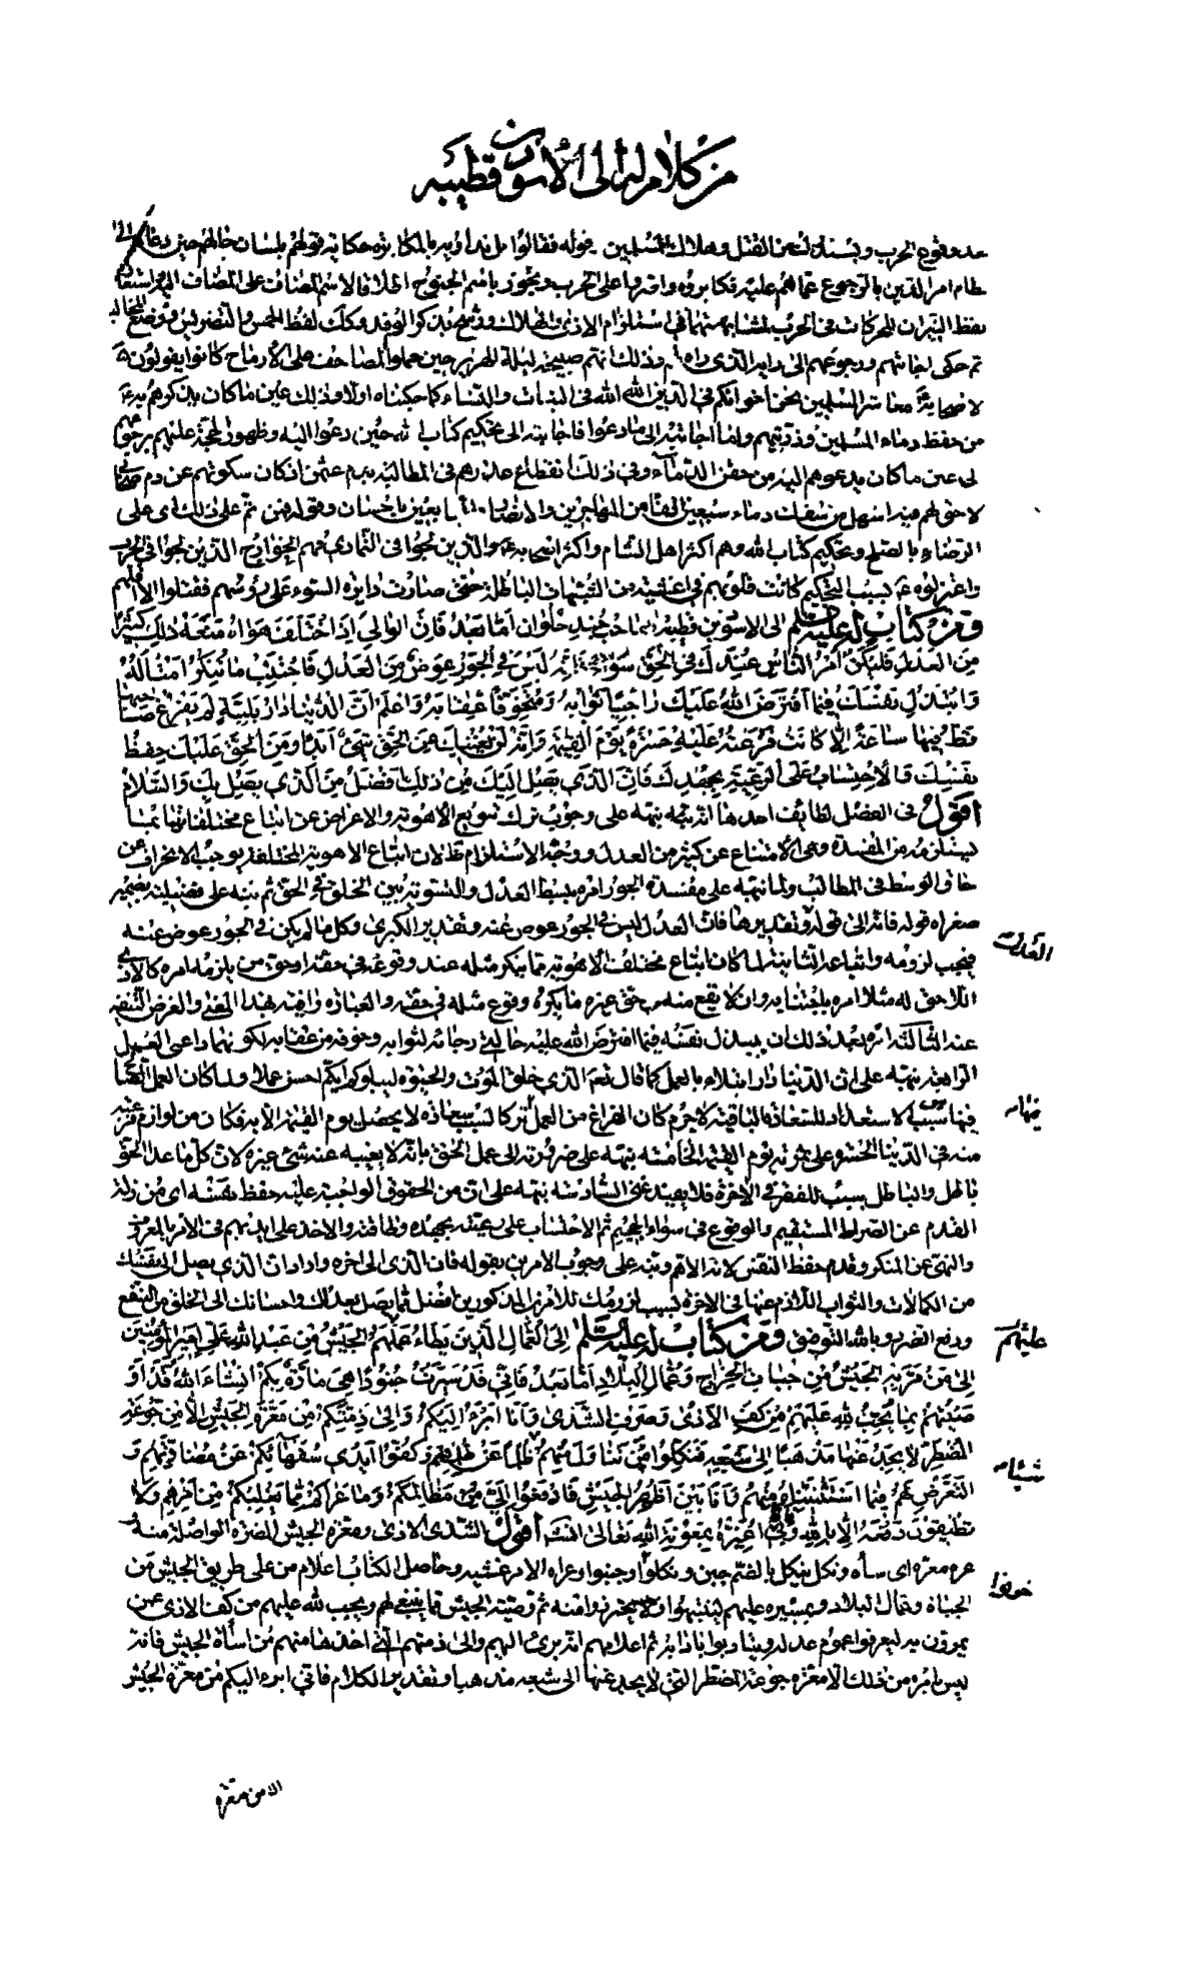 من كلام له الى الأسود بن قطيبه
بعد وقوع الحرب ويستدرك عن القتل وهلاك المسلمين قوله فقالوا بل نداويه بالمكابرة حكاية قولهم بلسان حالهم حين دعاهم الى
نظام امر الدين بالرجوع عما هم عليه فكابروه واقدموا على الحرب ويجوز باسم الجنوح اطلاقا لاسم المضاف على المضاف اليه واستعار
لفظ النيران للحركات في الحرب لمشابهتهما في استلزام الاذى والهلاك ورشح بذكر الوقد وكذلك لفظ الحمس والتضريس ووضع المخالب
ثم حكى اجابتهم ورجوعهم الى رايه الذي راه وذلك انهم صبيحة ليلة الهرير حين حملوا المصاحف على الأرماح كانوا يقولون
لاصحابه معاشر المسلمين نحن اخوانكم في الدين الله الله في البنات والنساء كما حكيناه اولا وذلك عين ما كان يذكرهم به
من حفظ دماء المسلمين وذريتهم واما اجابته الى ما دعوا فاجابته الى تحكيم كتاب الله حين دعوا اليه وظهور الحجة عليهم برجوعهم
الى عين ما كان يدعوهم اليه من حقن الدماء وفي ذلك انقطاع عذرهم في المطالبة بدم عثمن اذ كان سكوتهم عن دم صحابي
لا حق لهم فيه اسهل من سفك دماء سبعين الفا من المهاجرين والانصار والتابعين باحسان وقوله فمن تم على ذلك اى على
الرضاء بالصلح وتحكيم كتاب الله وهم اكثر اهل الشام واكثر اصحابه والذين لجوا في التمادى فهم الخوارج الذين لجوا في الحرب
واعتزلوه بسبب التحكيم كانت قلوبهم في اغشية من الشبهات الباطلة حتى صارت دايرة السوء على رؤسهم فقتلوا الا اقلهم
ومن كتاب له عليه السلم الى الاسود بن قطيبه صاحب جند حلوان اما بعد فان الوالي اذا اختلف هواه منعه ذلك كثيرا
من العدل فليكن امر الناس عندك في الحق سواء فانه ليس في الجور عوض من العدل فاجتنب ما تنكر امثاله
وابتذل نفسك فيما افترض الله عليك راجيا ثوابه ومتخوفا عقابه واعلم ان الدنيا دار بلية لم يفرغ صاحبها
قط فيها ساعة الا كانت فرغته عليه حسرة يوم القيمة وانه لن يغنيك عن الحق شئ ابدا ومن الحق عليك حفظ
نفسك والاحتساب على الرعية بجهدك فان الذي يصل اليك من ذلك افضل من الذي يصل بك والسلام
اقول في الفصل لطايف احدها انه نبه على وجوب ترك تنويع الاهوية والاعراض عن اتباع مختلفاتها بما
يستلزمه من المفسدة وهى الأمتناع عن كثير من العدل ووجه الاستلزام ظ لان اتباع الاهوية المختلفة يوجب الانحراف عن
حاق الوسط في المطالب ولما نبهه على مفسدة الجور امره ببسط العدل والتسوية بين الخلق في الحق ثم نبه على فضيلته بضمير
صغراه قوله فانه الى قوله وتقديرها فان العدل ليس في الجور عوض عنه وتقدير الكبرى وكل ما لم يكن في الجور عوض عنه
فيجب لزومه واتباعه الثانية لما كان اتباع مختلف الاهوية مما ينكر مثله عند وقوعه في حقه او حق من يلزمه امره كالاذى
اللاحق له مثلا امره باجتنابه وان لا يقع منه في حق غيره ما ينكر وقوع مثله في حقه والعبارة وافية بهذا المعنى والغرض التنفير
عنه الثالثة امره بعد ذلك ان يبذل نفسه فيما افترض الله عليه حالتي رجائه لثوابه وخوفه من عقابه لكونهما داعى العمل
الرابعة نبهه على ان الدنيا دار ابتلاء بالعمل كما قال نعم الذي خلق الموت والحيوة ليبلوكم ايكم احسن عملا ولما كان العمل الصالح
فيها سبب الاستعداد للسعادة الباقية لا جرم كان الفراغ من العمل تركا لسبب سعادة لا يحصل يوم القيمة الا به فكان من لوازم فرغته
منه في الدنيا الحسرة على ثمرته يوم القيمة الخامسة نبهه على ضرورته الى عمل الحق بانه لا يغنيه عنه شئ غيره لان كل ما عدا الحق
باطل والباطل سبب للفقر في الآخرة فلا يفيد غنى السادسة نبهه على ان من الحقوق الواجبة عليه حفظ نفسه اى من زلة
القدم عن الصراط المستقيم والوقوع في سواء الجحيم ثم الاحتساب على رعيته بجهده وطاقته والاخذ على ايديهم في الأمر بالمعروف
والنهى عن المنكر وقدم حفظ النفس لانه الاهم ونبه على وجوب الامرين بقوله فان الذى الى اخره واراد ان الذي يصل الى نفسك
من الكمالات والثواب اللازم عنها في الاخرة بسبب لزومك للامرين المذكورين افضل مما يصل بعدلك واحسانك الى الخلق من النفع
ودفع الضرر وبالله التوفيق ومن كتاب له عليه السلم الى العمال الذين يطاء عملهم الجيش من عبد الله علي امير المؤمنين
الى من مر به الجيش من جباة الخراج وعمال البلاد اما بعد فاني قد سيرت جنودا هي مارة بكم ان شاء الله وقد او
صيتهم بما يجب لله عليهم من كف الاذى وصرف الشذى وانا ابرء اليكم والى ذمتكم من معرة الجيش الا من جوعة
المضطر لا يجد عنها مذهبا الى شبعه فنكلوا من تناول منهم ظلما عن ظلمهم وكفوا ايدي سفهائكم عن مضادتهم و
التعرض لهم فيما استثنيناه منهم وانا بين اظهر الجيش فادفعوا الي مظالمكم وما عراكم مما يغلبكم من امرهم ولا
تطيقون دفعه الا بالله وبي اغيره بمعونة الله تعالى انشاء الله اقول الشذى الاذى ومعرة الجيش المضرة الواصلة منه
عره معرة اى سأه ونكل ينكل بالضم جبن ونكلوا جبنوا وعراه الامر غشيه وحاصل الكتاب اعلام من على طريق الجيش من
الجباة وعمال البلاد بمسيره عليهم ليتنبهوا ولا يحترزوا منه ثم وصيته الجيش بما ينبغي لهم ويجب لله عليهم من كف الاذى عمن
يمرون به ليعرفوا عموم عدله ويتادبوا بادابه ثم اعلامهم انه برئ اليهم والى ذمتهم التي اخذها منهم من اسأة الجيش فانه
ليس بامره من ذلك الا معرة جوعة المضطر التي لا يجد عنها الى شبعه مذهبا وتقدير الكلام فاني ابرء اليكم من معرة الجيش
العدل
فيها
عليهم
شيئا
خوفوا
الا من معرة